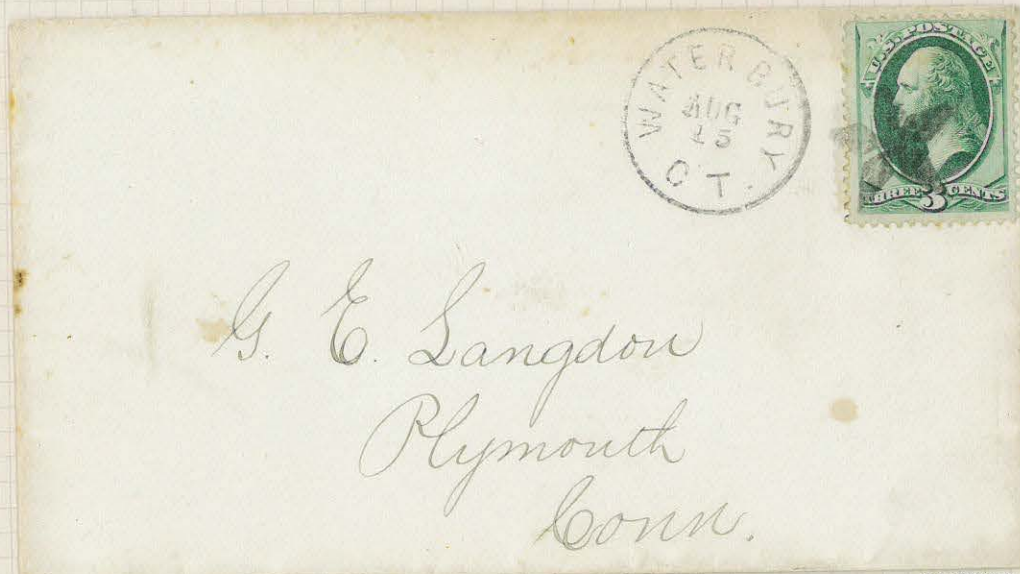 WATERBURY
AUG
15
CT.
U.S. POSTAGE
THREE 3 CENTS
G. E. Langdon
Plymouth
Conn.